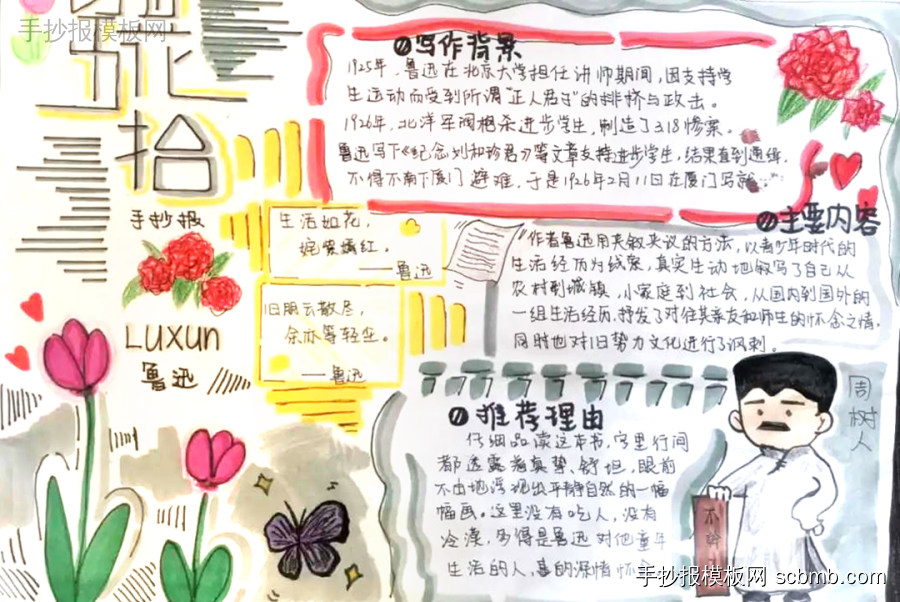 手抄报模板网
拾
手抄报
LUXUN
鲁迅
写作背景
1925年,鲁迅在北京大学担任讲师期间,因支持学
生运动而受到所谓"正人君子"的排挤与政击。
1926年,北洋军阀枪杀进步学生,制造了3.18惨案。
鲁迅写下《纪念刘和珍君》等文章支持进步学生,结果直到通缉,
不得不南下厦门避难,于是1926年2月11日在厦门写就
生活如花,
姹紫嫣红。
——鲁迅
旧朋云散尽,
余亦等轻尘。
——鲁迅
主要内容
作者鲁迅用夹叙夹议的方法,以青少年时代的
生活经历为线索,真实生动地叙写了自己从
农村到城镇,小家庭到社会,从国内到国外的
一组生活经历,抒发了对往其亲友和师生的怀念之情,
同时也对旧势力文化进行了讽刺。
推荐理由
仔细品读这本书,字里行间
都透露着真挚、舒坦,眼前
不由地浮现出平静自然的一幅
幅画。这里没有吃人,没有
冷漠,多得是鲁迅对他童年
生活的人,喜的深情怀
周树人
手抄报模板网 scbmb.com